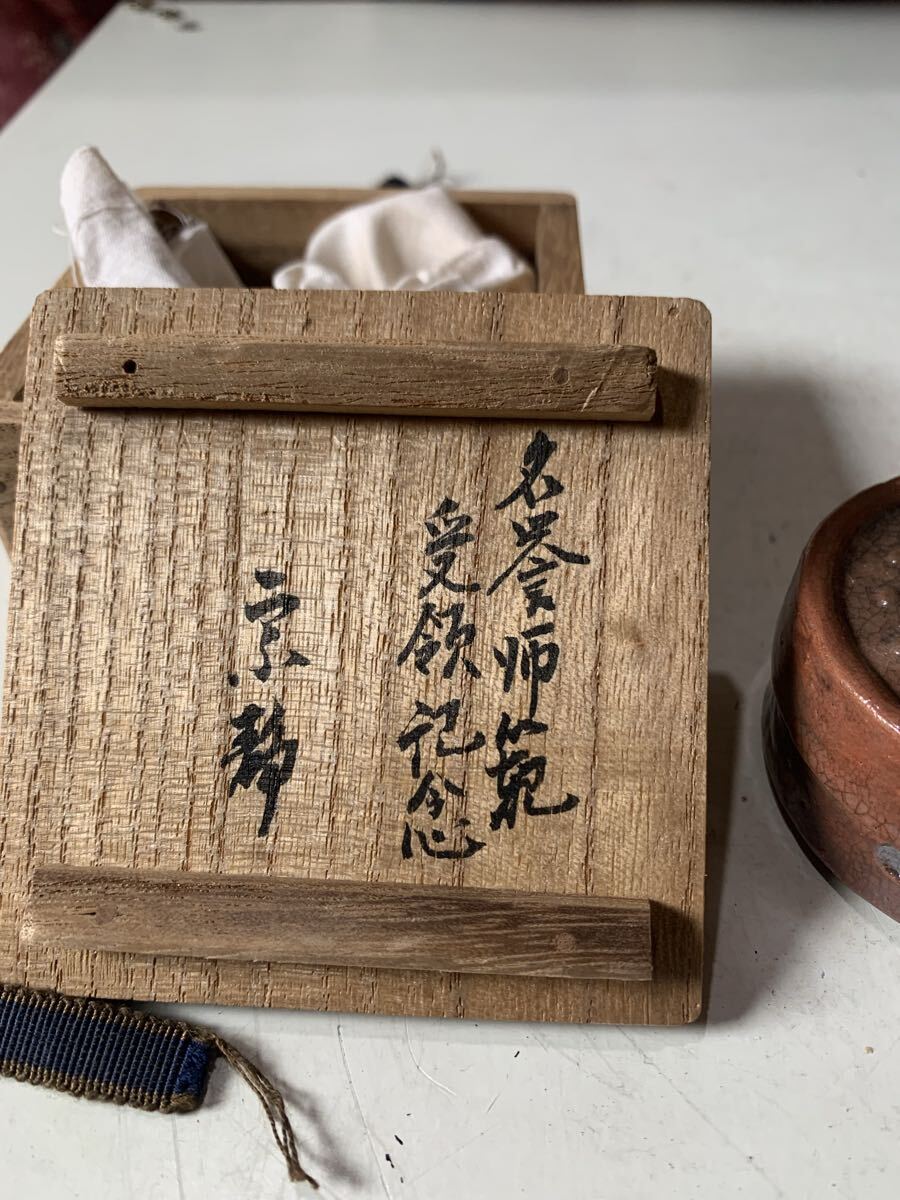 名誉师範
受領记念
宗静